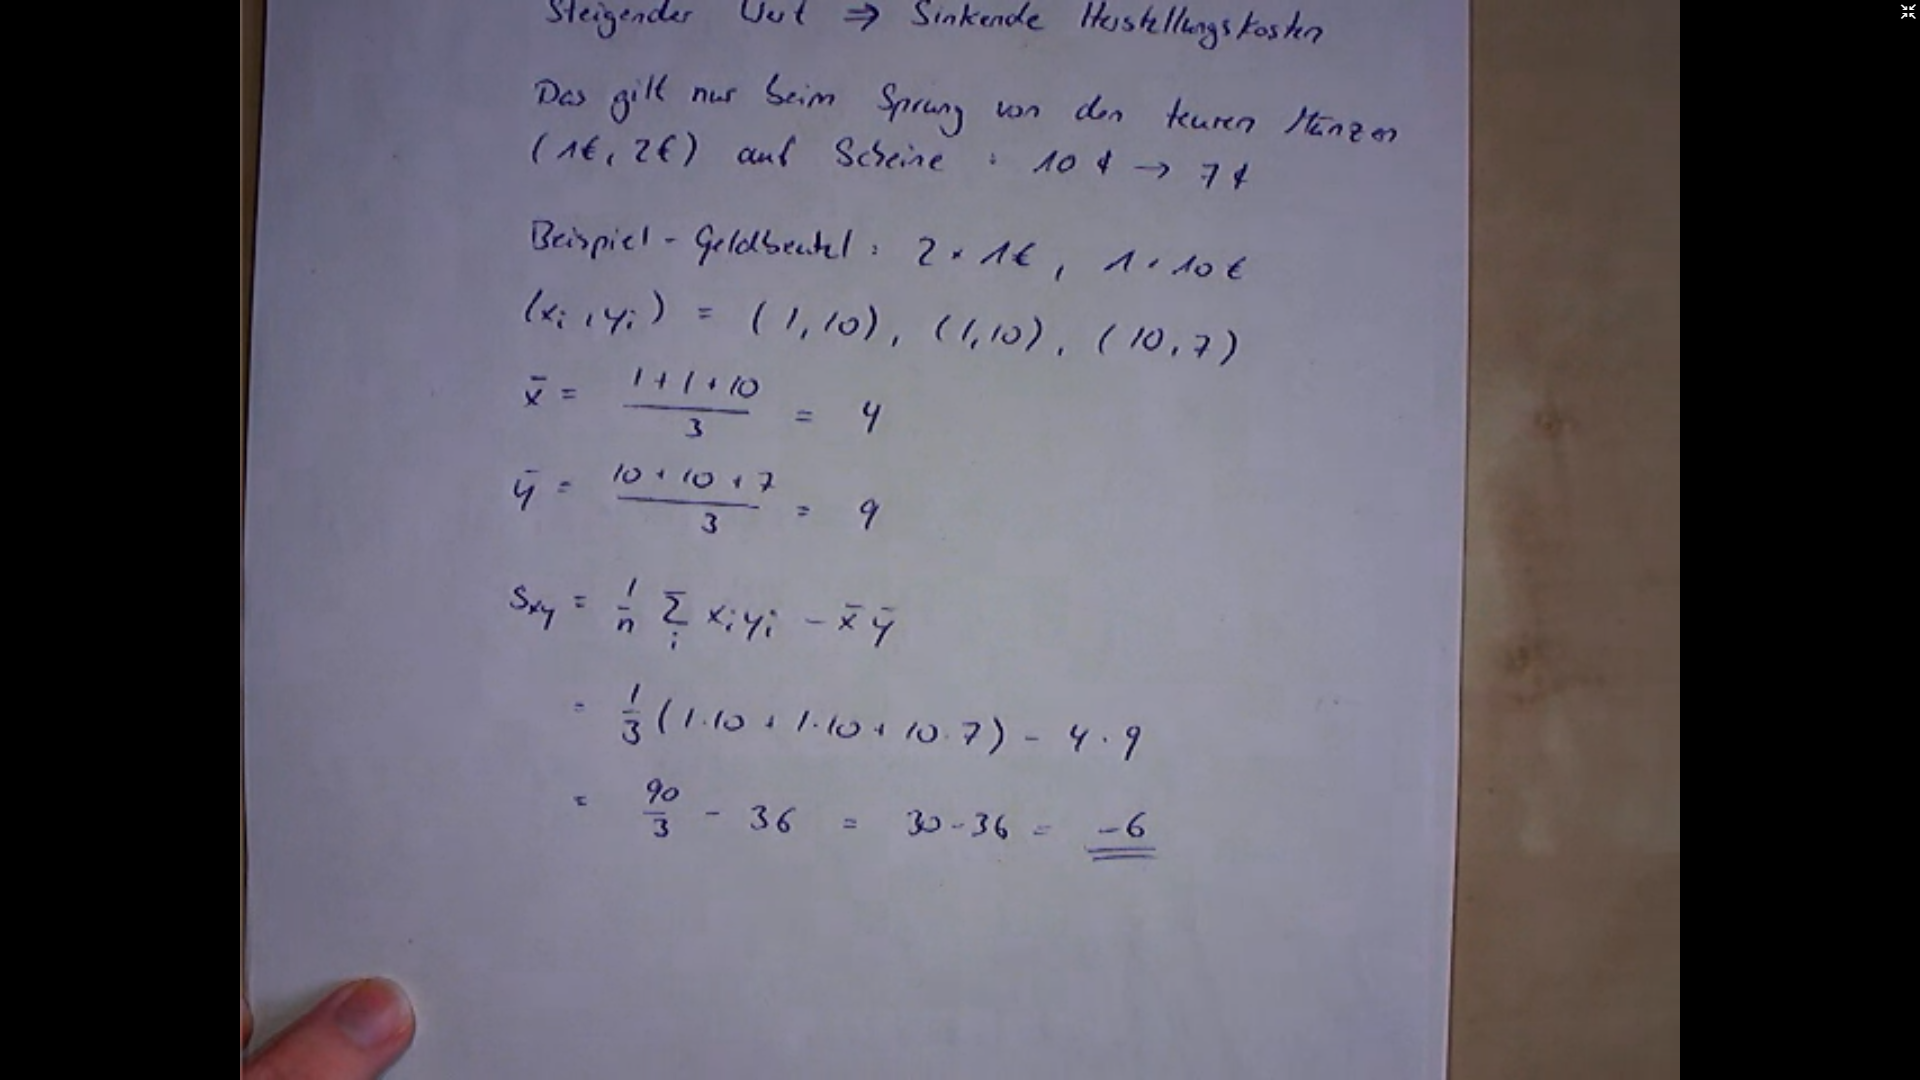 Steigender Wert ⇒ Sinkende Herstellungskosten
Das gilt nur beim Sprung von den teuren Münzen
(1€, 2€) auf Scheine : 10 ¢ → 7 ¢
Beispiel - Geldbeutel : 2 × 1€, 1 × 10 €
(xᵢ, yᵢ) = (1, 10), (1, 10), (10, 7)
x̄ = (1 + 1 + 10)/3 = 4
ȳ = (10 + 10 + 7)/3 = 9
S_xy = 1/n Σ_i xᵢyᵢ - x̄ ȳ
= 1/3 (1·10 + 1·10 + 10·7) - 4 · 9
= 90/3 - 36 = 30 - 36 = -6